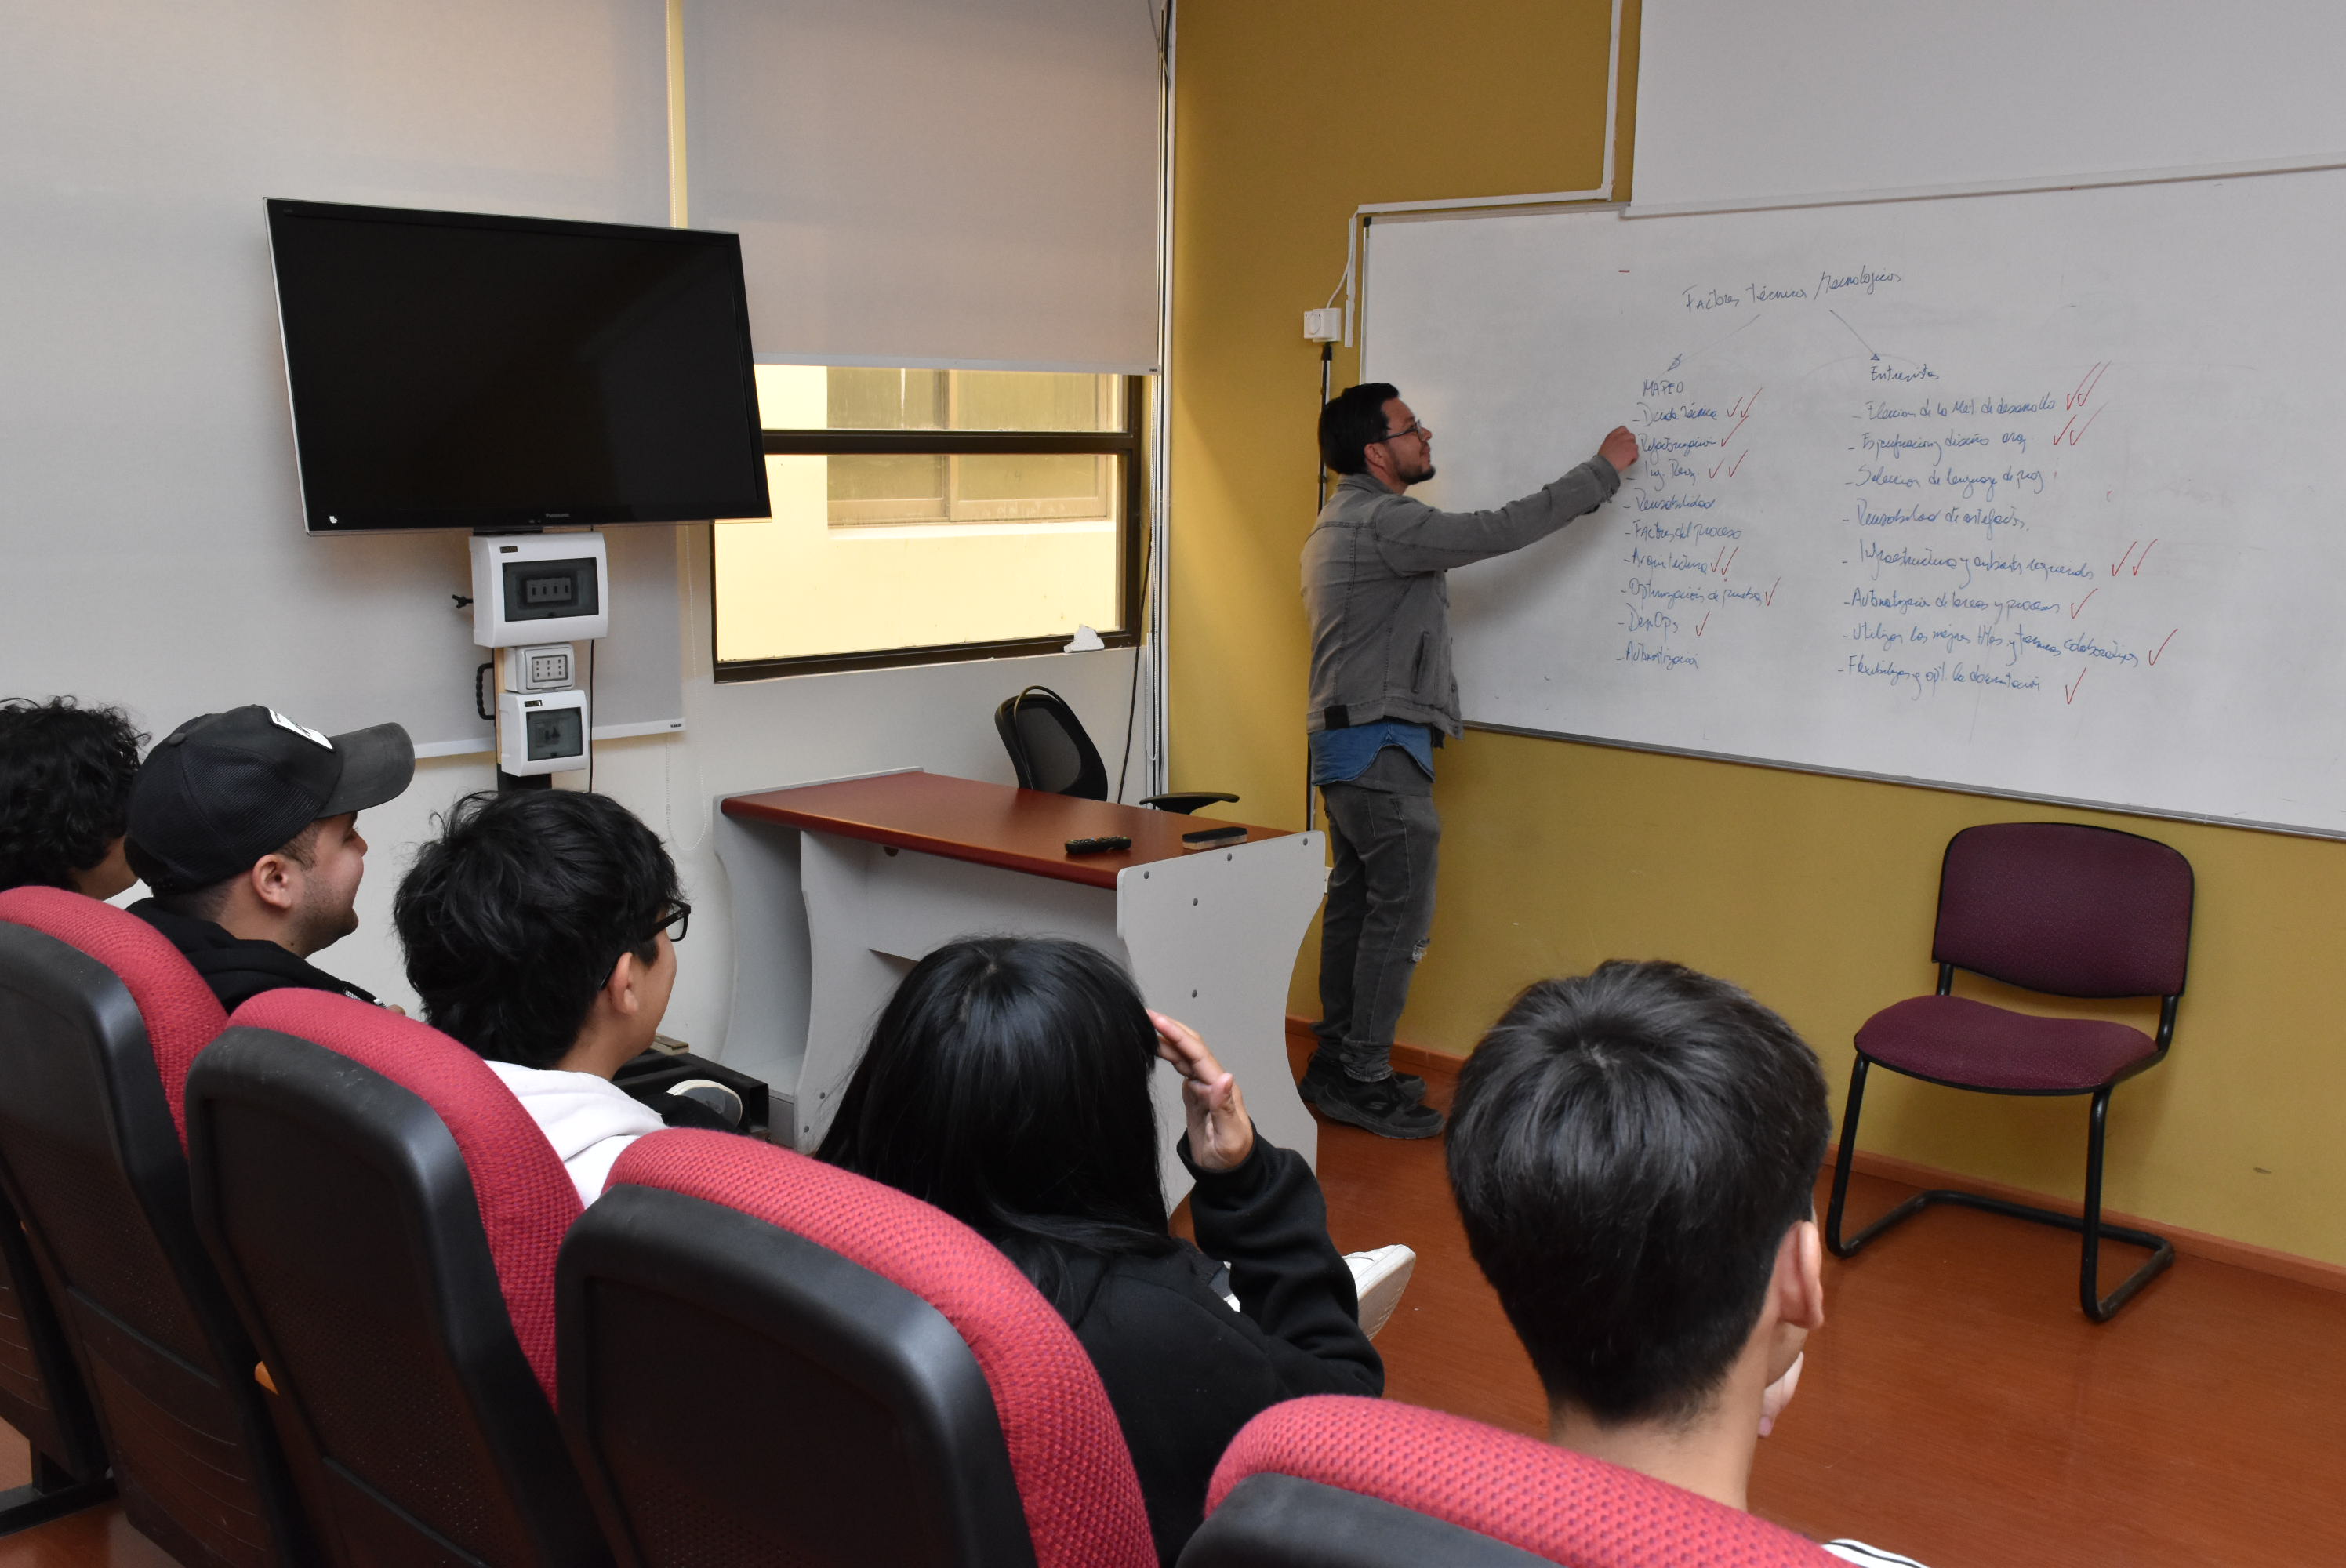 Factores Técnicos /Tecnológicos
MAPEO
- Deuda Técnica
- Refactorización
- Ing. Req.
- Reusabilidad
- Factores del proceso
- Arquitectura
- Optimización de pruebas
- DevOps
- Automatización
Entrevistas
- Elección de la Met. de desarrollo
- Especificación y diseño arq
- Selección de lenguaje de prog
- Reusabilidad de artefactos.
- Infraestructura y ambientes requeridos
- Automatización de tareas y procesos
- Utilizar las mejores y técnicas colaborativas
- Flexibilizar y opt. la documentación
Panasonic